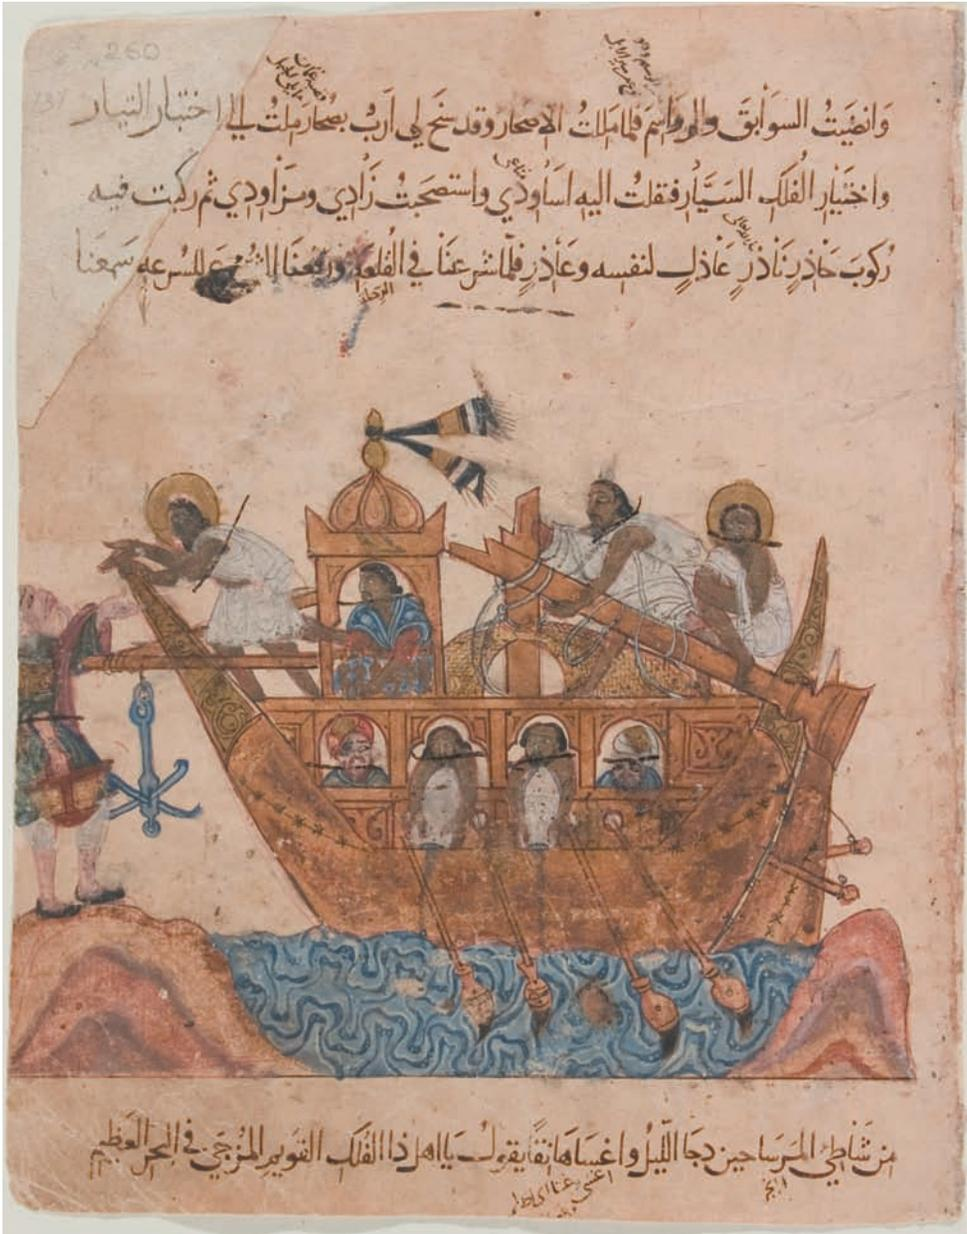 260
137
وانضيت السوابق والرواسم فلما مللت الاصحار وقد سنح لي أرب بصحار ملت إلى اختبار التيار
واختيار الفلك السيار فنقلت اليه اساودي واستصحبت زادي ومزاودي ثم ركبت فيه
ركوب حاذر ناذر عاذل لنفسه وعاذر فلما شرعنا في القلعة ورفعنا الشرع للسرعه سمعنا
من شاطئ المرسا حين دجا الليل واغسا هاتفا يقول يا اهل ذا الفلك القويم المزجي في البحر العظيم